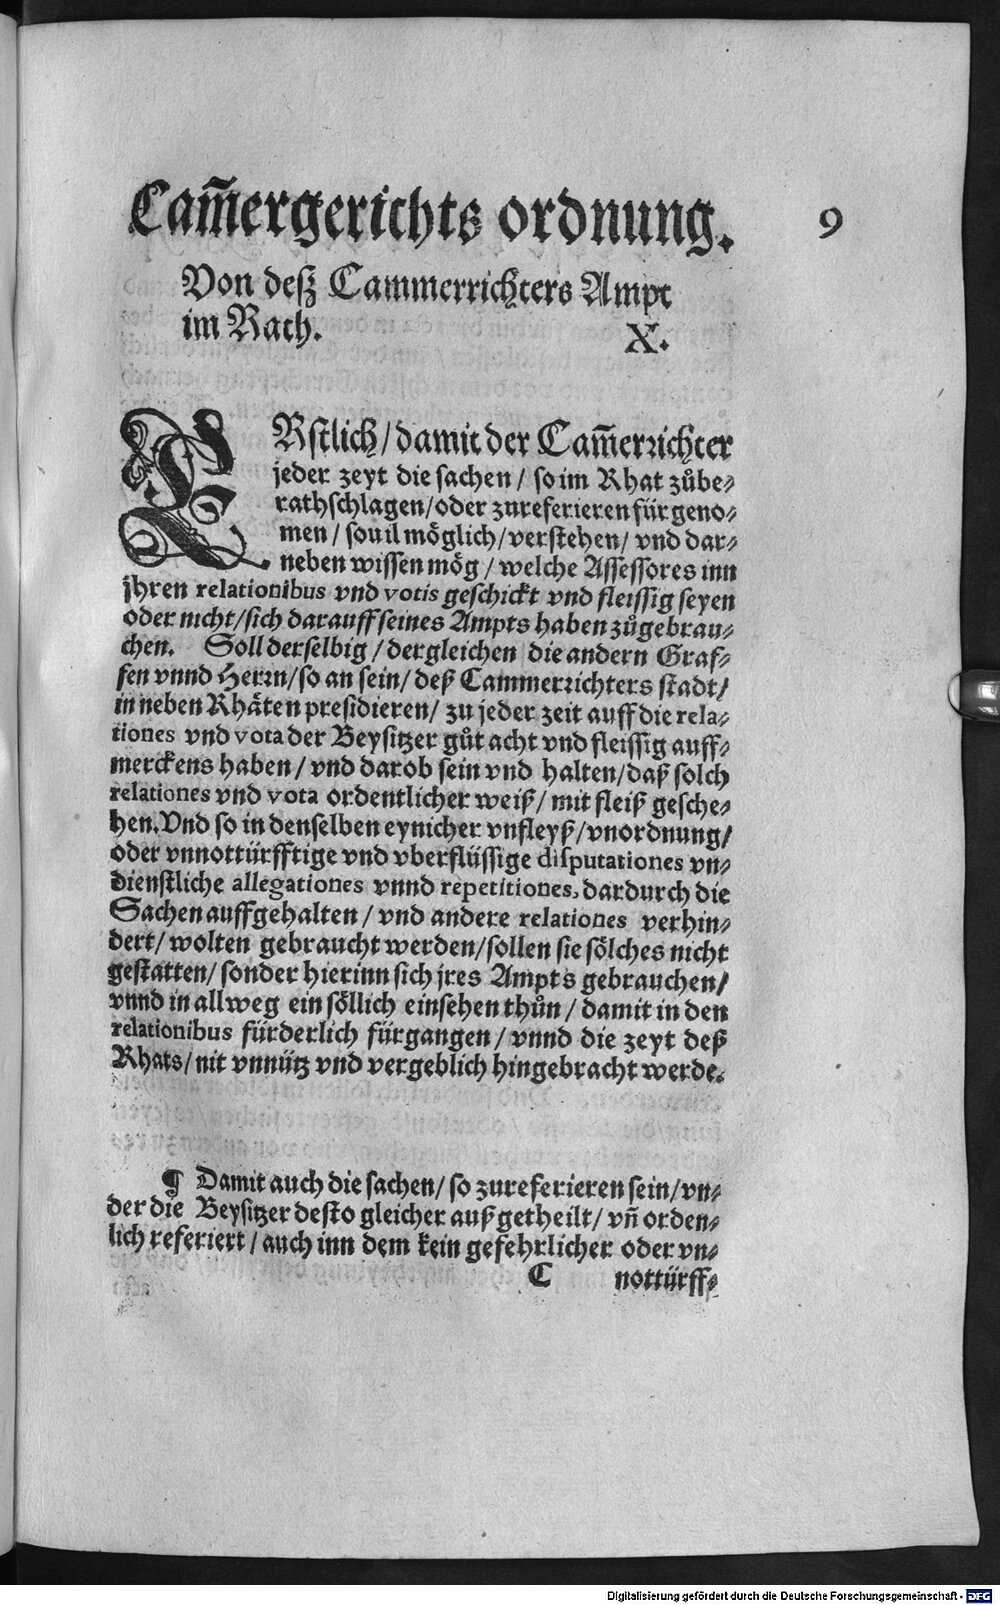 Cam̃ergerichts ordnung.
9
Von deß Cammerrichters Ampt
im Rath.
X.
ERstlich/ damit der Cam̃errichter
jeder zeyt die sachen/ so im Rhat zůbe-
rathschlagen/ oder zureferieren fürgeno-
men/ souil möglich/ verstehen/ vnd dar-
neben wissen mög/ welche Assessores inn
jhren relationibus vnd votis geschickt vnd fleissig seyen
oder nicht/ sich darauff seines Ampts haben zůgebrau-
chen. Soll derselbig/ dergleichen die andern Graf-
fen vnnd Herrn/ so an sein/ deß Cammerrichters stadt/
in neben Rhäten presidieren/ zu jeder zeit auff die rela-
tiones vnd vota der Beysitzer gůt acht vnd fleissig auff-
merckens haben/ vnd darob sein vnd halten/ daß solch
relationes vnd vota ordentlicher weiß/ mit fleiß gesche-
hen. Vnd so in denselben eynicher vnfleyß/ vnordnung/
oder vnnottürfftige vnd vberflüssige disputationes vn-
dienstliche allegationes vnnd repetitiones, dardurch die
Sachen auffgehalten/ vnd andere relationes verhin-
dert/ wolten gebraucht werden/ sollen sie sölches nicht
gestatten/ sonder hierinn sich jres Ampts gebrauchen/
vnnd in allweg ein söllich einsehen thůn/ damit in den
relationibus fürderlich fürgangen/ vnnd die zeyt deß
Rhats/ nit vnnütz vnd vergeblich hingebracht werde.
¶ Damit auch die sachen/ so zureferieren sein/ vn-
der die Beysitzer desto gleicher auß getheilt/ vñ orden-
lich referiert/ auch inn dem kein gefehrlicher oder vn-
C nottürff-
Digitalisierung gefördert durch die Deutsche Forschungsgemeinschaft - DFG